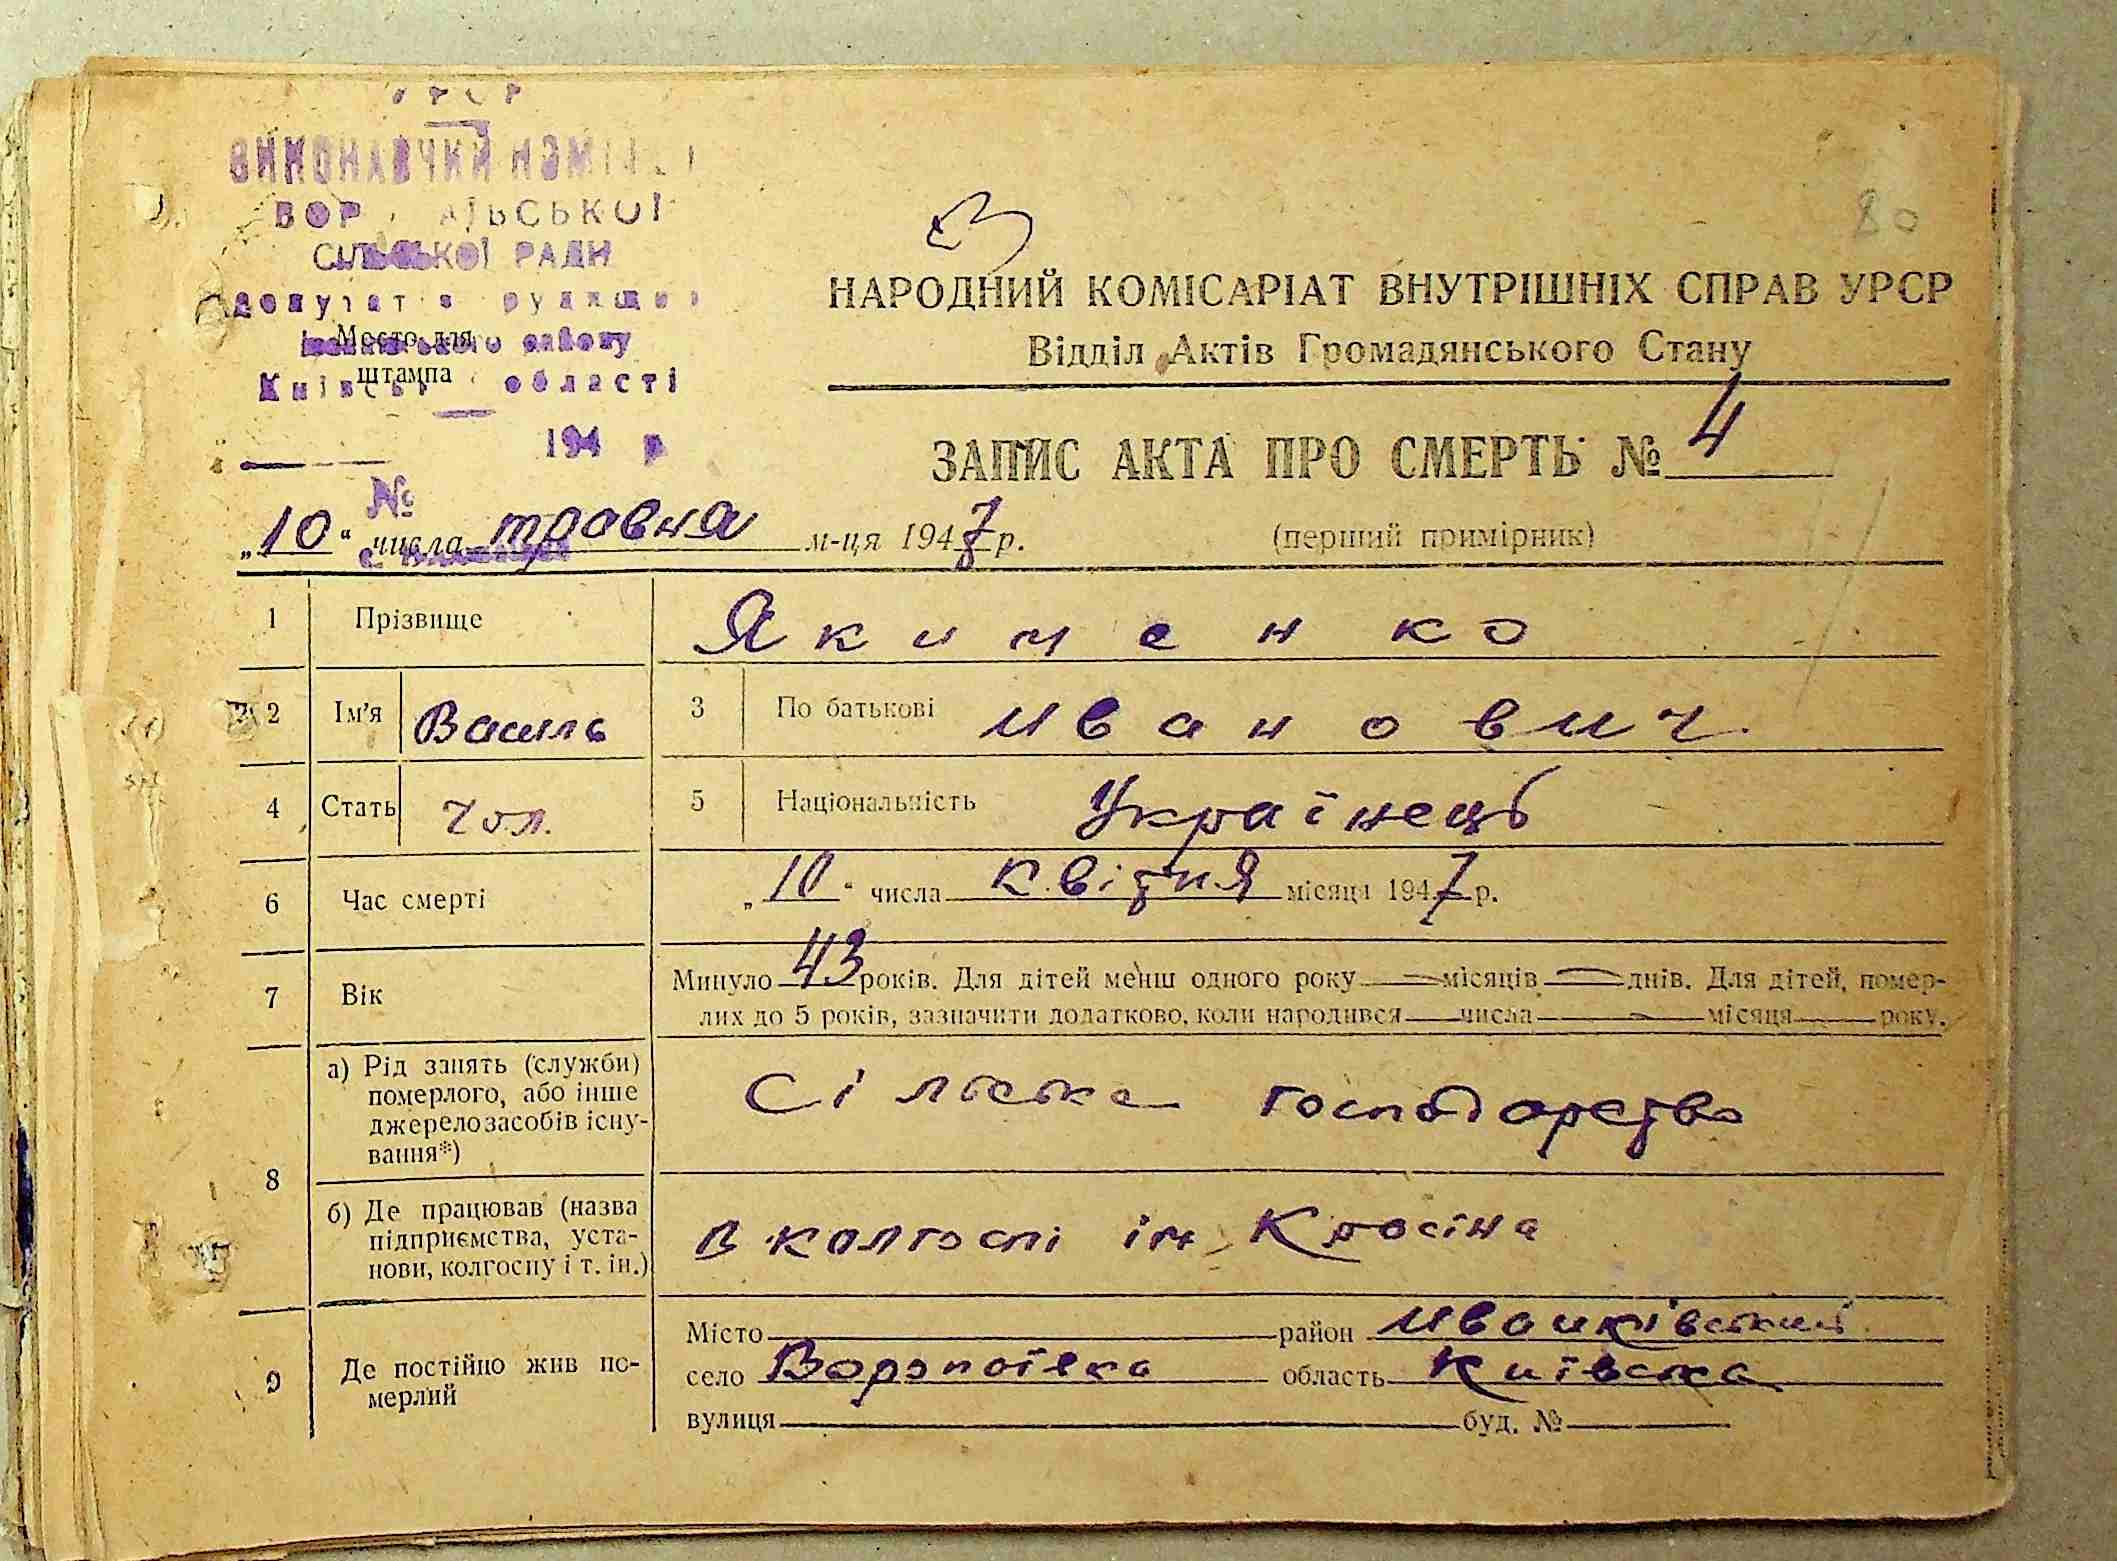 УРСР
ВИКОНАВЧИЙ КОМІ
ВОР АЇВСЬКОЇ
СІЛЬСЬКОЇ РАДИ
депутатів трудящих
Іванківського району
Місто для
штампа
Київськ області
194 р
№
80
НАРОДНИЙ КОМІСАРІАТ ВНУТРІШНІХ СПРАВ УРСР
Відділ Актів Громадянського Стану
ЗАПИС АКТА ПРО СМЕРТЬ № 4
„10“ числа травня м-ця 1947 р.
(перший примірник)
1 Прізвище Якименко
2 Ім'я Василь 3 По батькові Иванович
4 Стать Чол. 5 Національність Українець
6 Час смерті „10“ числа квітня місяця 1947 р.
7 Вік Минуло 43 років. Для дітей менш одного року — місяців — днів. Для дітей, помер-
лих до 5 років, зазначити додатково, коли народився — числа — місяця — року.
8 а) Рід занять (служби)
померлого, або інше
джерело засобів існу-
вання*)
Сільське господарство
б) Де працював (назва
підприємства, уста-
нови, колгоспу і т. ін.)
в колгоспі ім Красіна
9 Де постійно жив по-
мерлий
Місто район Иванківський
село область Київська
вулиця буд. №